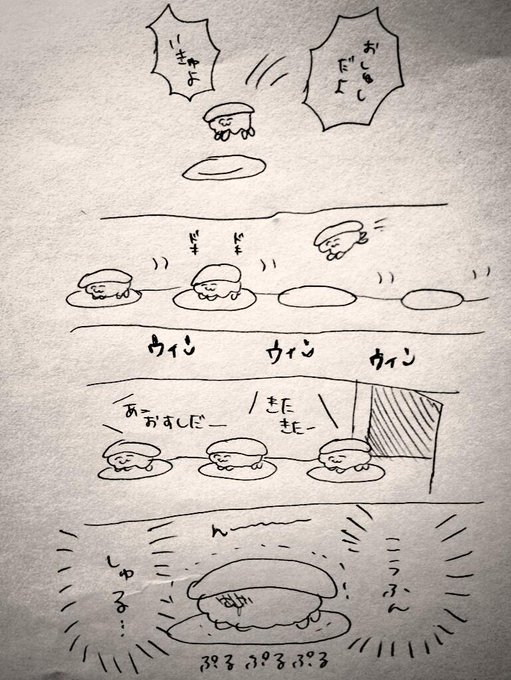 おしゅし
だよ
いきゅよ
ドキ
ドキ
ウィン
ウィン
ウィン
きた
きたー
あー
おすしだー
こうふん
んーーー
しゅる…
ぷる ぷる ぷる